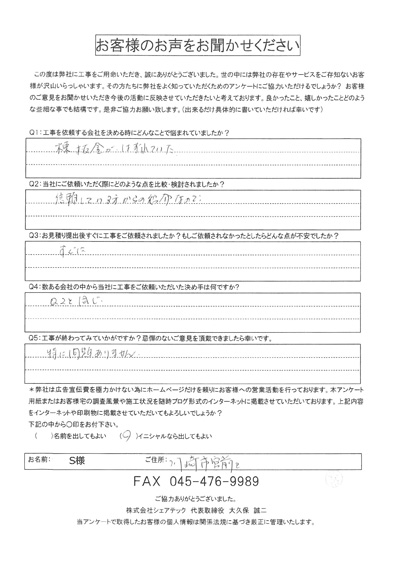 お客様のお声をお聞かせください
この度は弊社に工事をご用命いただき、誠にありがとうございました。世の中には弊社の存在やサービスをご存知ないお客
様が沢山いらっしゃいます。その方たちに弊社をよく知っていただくためのアンケートにご協力いただけるでしょうか？ お客様
のご意見をお聞かせいただき今後の活動に反映させていただきたいと考えております。良かったこと、嬉しかったことどのよう
な些細な事でも結構です。是非ご協力お願い致します。（出来るだけ具体的に書いていただければ幸いです）
Q1：工事を依頼する会社を決める時にどんなことで悩まれていましたか？
棟板金がはずれていた
Q2：当社にご依頼いただく際にどのような点を比較・検討されましたか？
信頼している方からの紹介なので
Q3：お見積り提出後すぐに工事をご依頼されましたか？もしご依頼されなかったとしたらどんな点が不安でしたか？
すぐに
Q4：数ある会社の中から当社に工事をご依頼いただいた決め手は何ですか？
Q2と同じ
Q5：工事が終わってみていかがですか？忌憚のないご意見を頂戴できましたら幸いです。
特に問題ありません
＊弊社は広告宣伝費を極力かけない為にホームページだけを頼りにお客様への営業活動を行っております。本アンケート
用紙またはお客様宅の調査風景や施工状況を随時ブログ形式のインターネットに掲載させていただいております。上記内容
をインターネットや印刷物に掲載させていただいてもよろしいでしょうか？
下記の中から〇印をお付下さい。
（ ）名前を出してもよい （〇）イニシャルなら出してもよい
お名前： S様 ご住所： 川崎市宮前区
FAX 045-476-9989
ご協力ありがとうございました。
株式会社シェアテック 代表取締役 大久保 誠二
当アンケートで取得したお客様の個人情報は関係法規に基づき厳正に管理いたします。